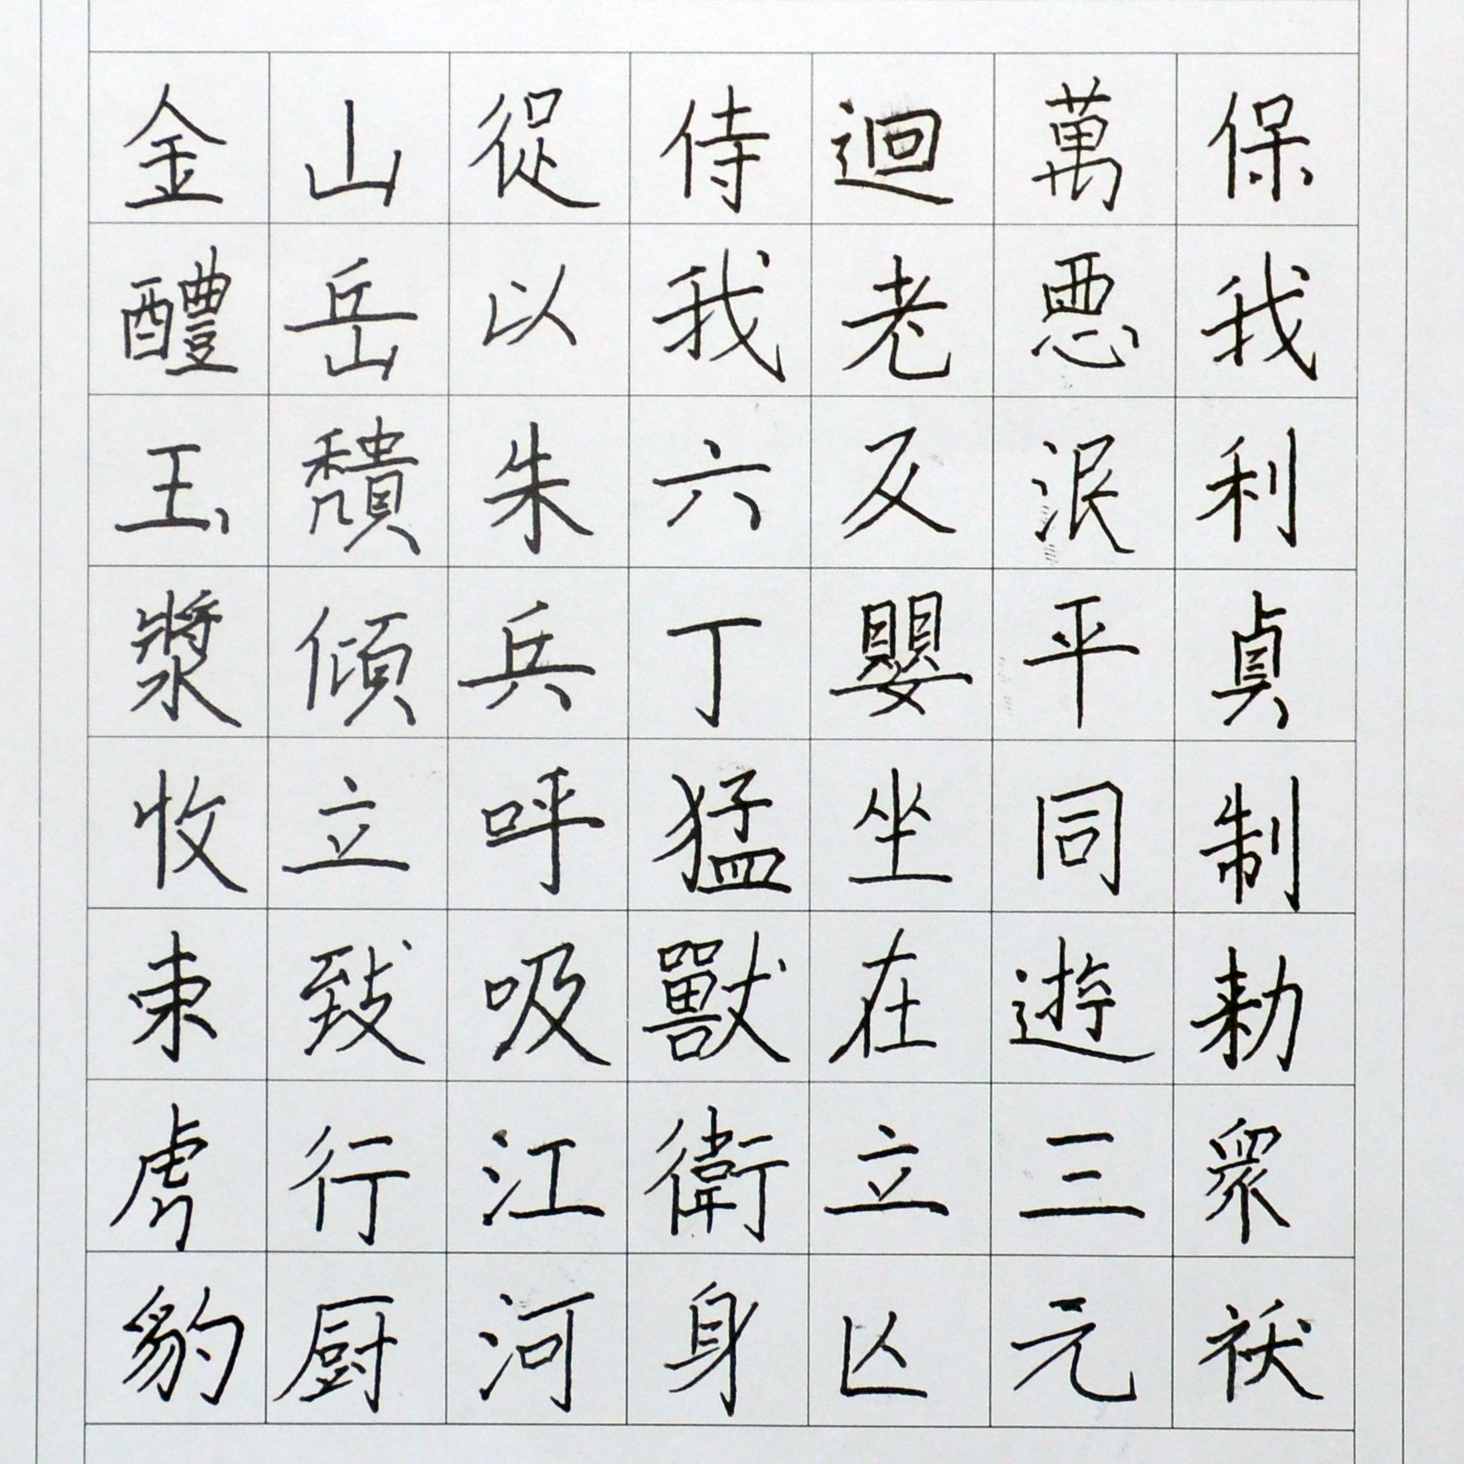 保我利貞制勑眾祅
萬惡泯平同遊三元
迴老反嬰坐在立亾
侍我六丁猛獸衛身
從以朱兵呼吸江河
山岳頹傾立致行厨
金醴玉漿收束虎豹